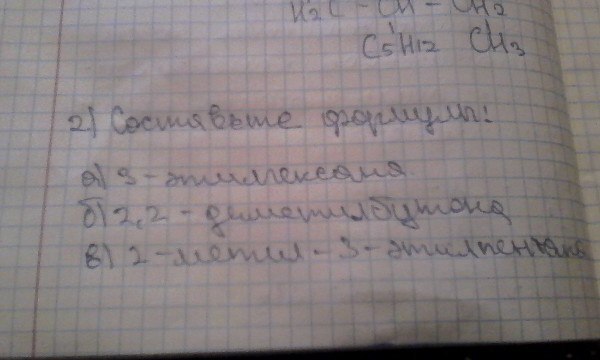 H2C - CH - CH2
C5H12 CH3
2) Составьте формулы:
а) 3-этилгексана
б) 2,2-диметилбутана
в) 2-метил-3-этилпентана